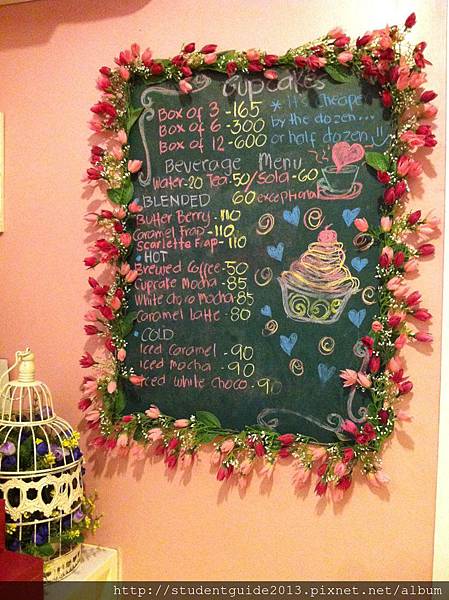 Cupcakes
Box of 3 - 165
Box of 6 - 300
Box of 12 - 600
* It's cheape
by the dozen...
or half dozen
Beverage Menu
Water-20 Tea-50/Sola-60
• BLENDED 60 exceptional
Butter Berry - 110
Caramel Frap - 110
Scarlette Frap - 110
• HOT
Brewed Coffee - 50
Cupcake Mocha - 85
White choco Mocha - 85
Caramel Latte - 80
• COLD
Iced Caramel - 90
Iced Mocha - 90
Iced White Choco - 90
http://studentguide2013.pixnet.net/album